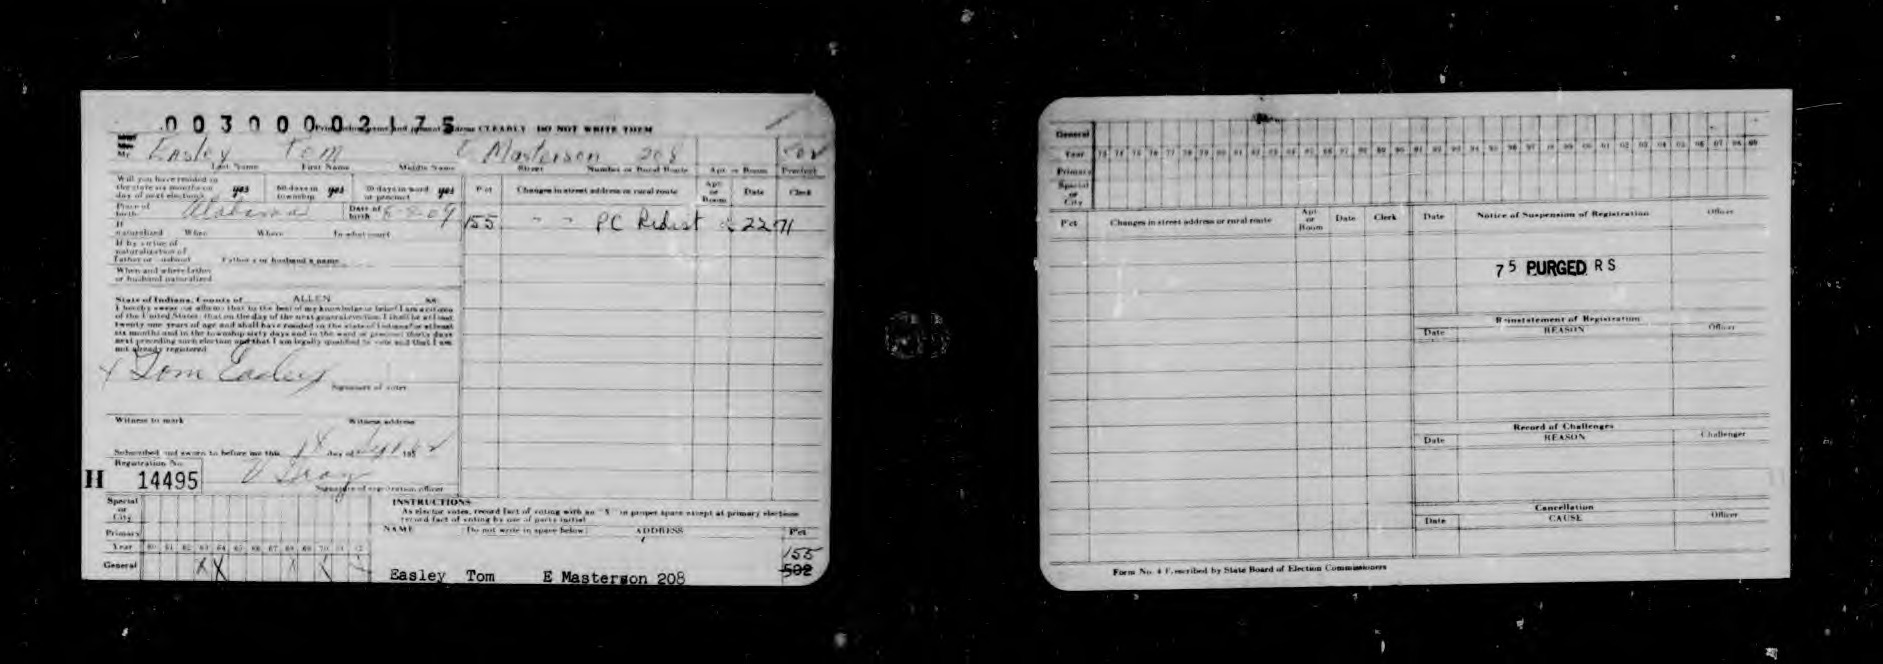 003000002175
CLEARLY DO NOT WRITE THEM
Mr Easley Tom E Masterson 208 502
Last Name First Name Middle Name Street Number or Rural Route Apt or Room Precinct
Will you have resided in the state six months on day of next election? yes 60 days in township yes 30 days in ward or precinct yes
Pct Changes in street address or rural route Apt or Room Date Clerk
Place of birth Alabama Date of birth
155 " " PC Redist 22 71
If naturalized When Where In what court
If by virtue of naturalization of father or husband Father's or husband's name
When and where father or husband naturalized
State of Indiana, County of ALLEN ss
I hereby swear (or affirm) that to the best of my knowledge or belief I am a citizen
of the United States; that on the day of the next general election I shall be at least
twenty one years of age and shall have resided in the state of Indiana for at least
six months and in the township sixty days and in the ward or precinct thirty days
next preceding such election and that I am legally qualified to vote and that I am
not already registered
X Tom Easley
Signature of voter
Witness to mark Witness address
Subscribed and sworn to before me this 18 day of Sept 195
Registration No.
H 14495
Signature of registration officer
INSTRUCTIONS
As elector votes, record fact of voting with an "X" in proper space except at primary elections
record fact of voting by use of party initial
NAME Do not write in space below ADDRESS Pct
Special or City
Primary
Year 60 61 62 63 64 65 66 67 68 69 70 71 72
General X X X X
155
Easley Tom E Masterson 208 502
General
Year 73 74 75 76 77 78 79 80 81 82 83 84 85 86 87 88 89 90 91 92 93 94 95 96 97 98 99 00 01 02 03 04 05 06 07 08 09
Primary
Special or City
Pct Changes in street address or rural route Apt or Room Date Clerk
Date Notice of Suspension of Registration Officer
75 PURGED RS
Reinstatement of Registration
Date REASON Officer
Record of Challenges
Date REASON Challenger
Cancellation
Date CAUSE Officer
Form No. 4 Prescribed by State Board of Election Commissioners